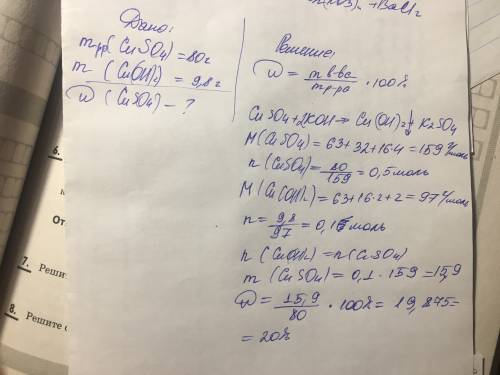 Дано:
mрр(CuSO4)=80г
m (Cu(OH)2) = 9,8г
ω (CuSO4) - ?
Решение:
ω = m в-ва / m р-ра · 100%
CuSO4+2KOH → Cu(OH)2↓ + K2SO4
M(CuSO4) = 63+32+16·4 = 159 г/моль
n(CuSO4) = 80/159 = 0,5 моль
M(Cu(OH)2) = 63+16·2+2 = 97 г/моль
n = 9,8/97 = 0,1 моль
n (Cu(OH)2) = n(CuSO4)
m (CuSO4) = 0,1 · 159 = 15,9
ω = 15,9/80 · 100% = 19,875=
= 20%
6.
От
7. Реши
8. Решите